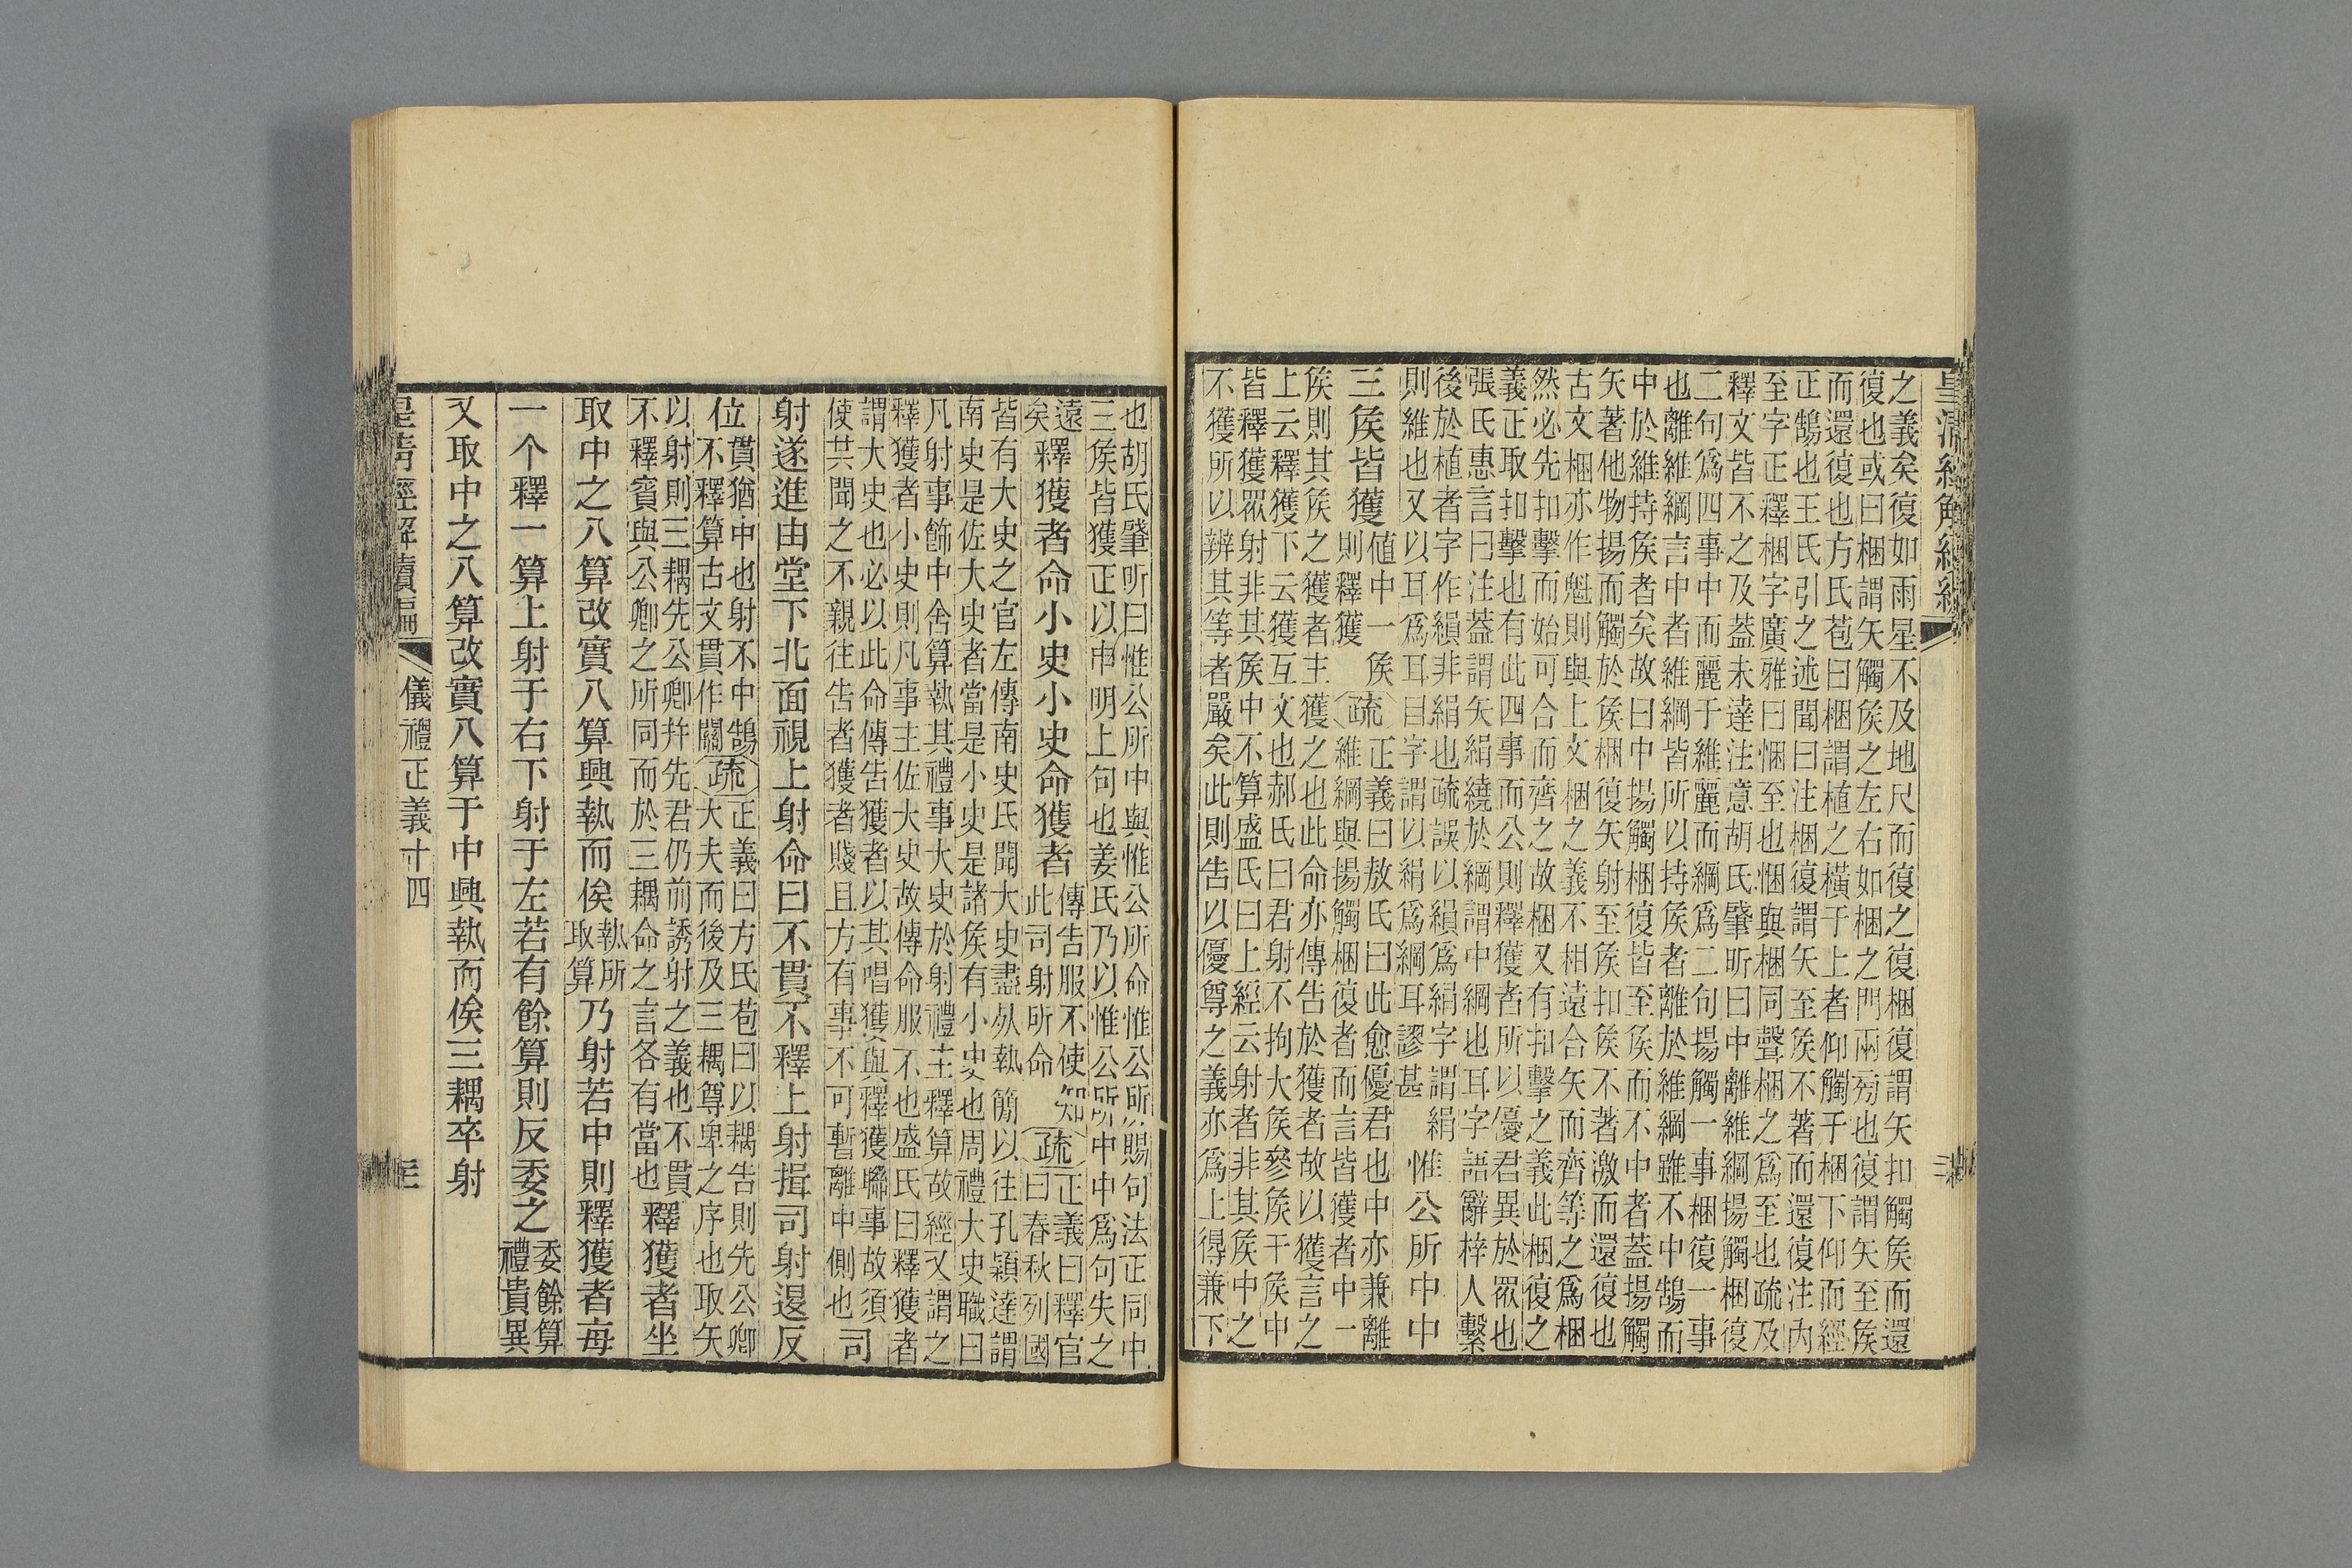 皇清經解續編
之義矣復如雨星不及地尺而復之復梱復謂矢扣觸矦而還
復也或曰梱謂矢觸矦之左右如梱之門兩旁也復謂矢至矦
而還復也方氏苞曰梱謂植之橫于上者仰觸于梱下仰而經
正鵠也王氏引之述聞曰注梱復謂矢至矦不著而還復注內
至字正釋梱字廣雅曰悃至也悃與梱同聲梱之爲至也疏及
釋文皆不之及葢未達注意胡氏肇昕曰中離維綱揚觸梱復
二句爲四事中而麗于維麗而綱爲二句揚觸一事梱復一事
也離維綱言中者維綱皆所以持矦者離於維綱雖不中鵠而
中於維持矦者矣故曰中揚觸梱復皆至矦而不中者葢揚觸
矢著他物揚而觸於矦梱復矢射至矦扣矦不著激而還復也
古文梱亦作魁則與上文梱之義不相遠合矢而齊等之爲梱
然必先扣擊而始可合而齊之故梱又有扣擊之義此梱復之
義正取扣擊也有此四事而公則釋獲者所以優君異於眾也
張氏惠言曰注葢謂矢絹繞於綱謂中綱也耳字語辭梓人繫
後於植者字作縜非絹也疏誤以縜爲絹字謂絹
則維也又以耳爲耳目字謂以絹爲綱耳謬甚
惟公所中中
三矦皆獲
値中一矦
則釋獲
疏
正義曰敖氏曰此愈優君也中亦兼離
維綱與揚觸梱復者而言皆獲者中一
矦則其矦之獲者主獲之也此命亦傳告於獲者故以獲言之
上云釋獲下云獲互文也郝氏曰君射不拘大矦參矦干矦中
皆釋獲眾射非其矦中不算盛氏曰上經云射者非其矦中之
不獲所以辨其等者嚴矣此則告以優尊之義亦爲上得兼下
也胡氏肇昕曰惟公所中與惟公所命惟公所賜句法正同中
三矦皆獲正以申明上句也姜氏乃以惟公所中中爲句失之
遠
矣
釋獲者命小史小史命獲者
傳告服不使知
此司射所命
疏
正義曰釋官
曰春秋列國
皆有大史之官左傳南史氏聞大史盡死執簡以往孔穎達謂
南史是佐大史者當是小史是諸矦有小史也周禮大史職曰
凡射事飾中舍算執其禮事大史於射禮主釋算故經又謂之
釋獲者小史則凡事主佐大史故傳命服不也盛氏曰釋獲者
謂大史也必以此命傳告獲者以其唱獲與釋獲聯事故須
使其聞之不親往告者獲者賤且方有事不可暫離中側也
司
射遂進由堂下北面視上射命曰不貫不釋上射揖司射退反
位
貫猶中也射不中鵠
不釋算古文貫作關
疏
正義曰方氏苞曰以耦告則先公卿
大夫而後及三耦尊卑之序也取矢
以射則三耦先公卿幷先君仍前誘射之義也不貫
不釋賓與公卿之所同而於三耦命之言各有當也
釋獲者坐
取中之八算改實八算興執而俟
執所
取算
乃射若中則釋獲者每
一个釋一算上射于右下射于左若有餘算則反委之
委餘算
禮貴異
又取中之八算改實八算于中興執而俟三耦卒射
皇清經解續編
儀禮正義十四